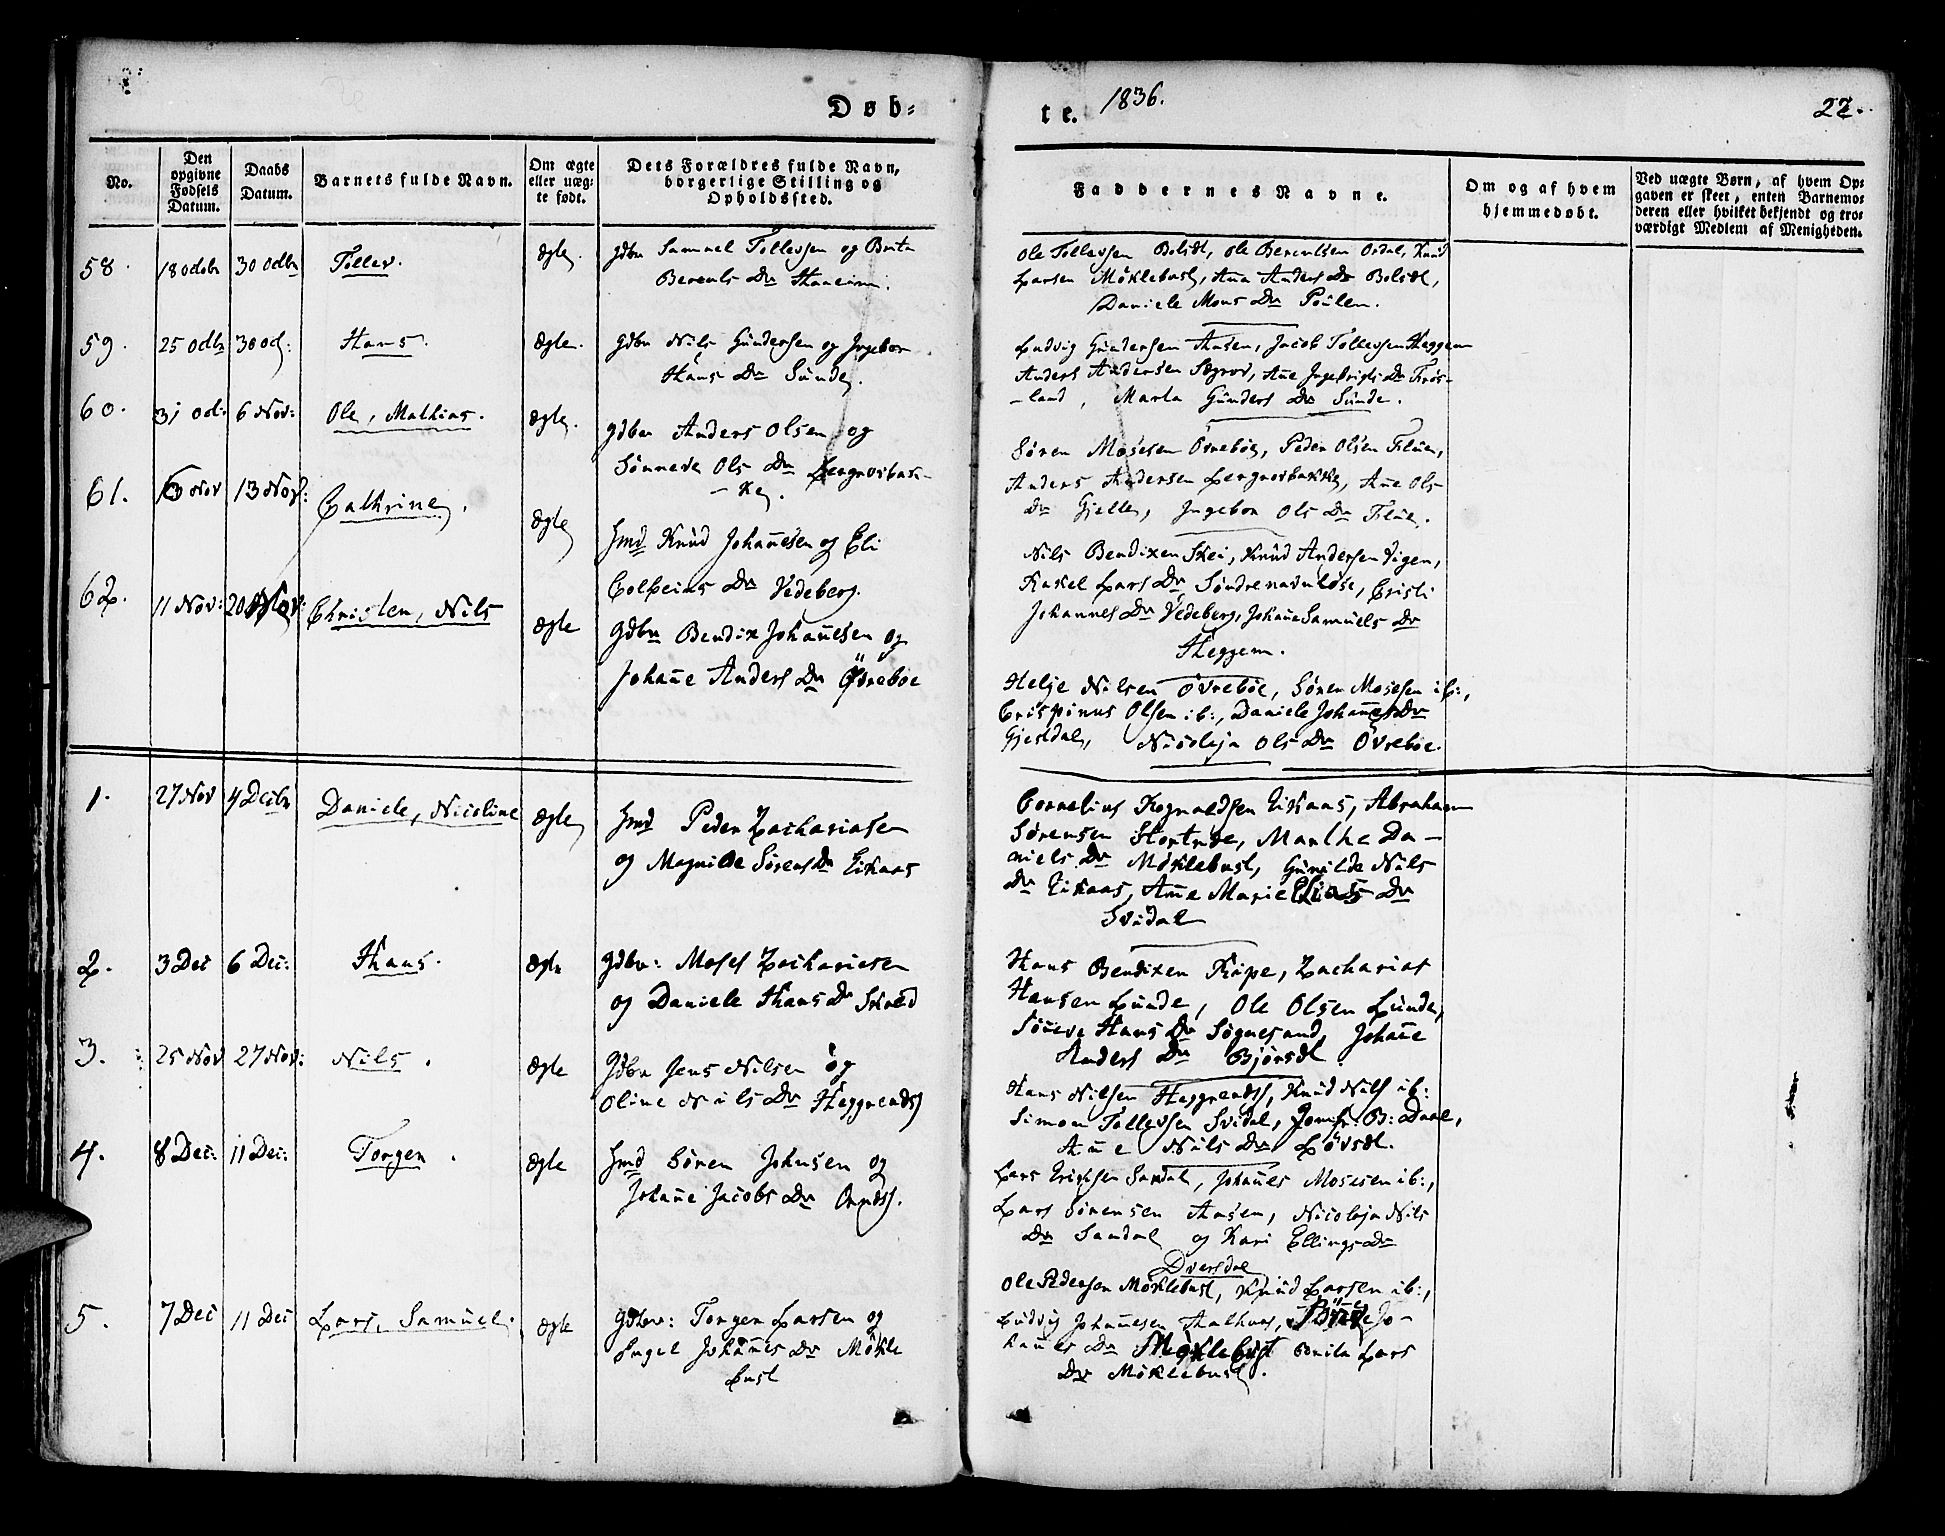 Døb=
te. 1836.
22.
No.
Den opgivne Fødsels Datum.
Daabs Datum.
Barnets fulde Navn.
Om ægte eller uægte født.
Dets Forældres fulde Navn, borgerlige Stilling og Opholdssted.
Faddernes Navne.
Om og af hvem hjemmedøbt.
Ved uægte Børn, af hvem Opgaven er skeet, enten Barnemoderen eller hvilket bekjendt og troværdigt Medlem af Menigheden.
58. 18 Octbr 30 Octbr Tollev. Ægte. Gdbr Samuel Tollevsen og Brita
Berents Dr
Ole Tollevsen Bolsdt, Ole Berentsen Ordal, Knud
Larsen Møklebust, Ana Anders Dr Bolsdt,
Daniele Mons Dr
59. 25 Octbr 30 Oct: Hans. Ægte. Gdbr Nils Gundersen og Ingebor
Hans Dr Sunde.
Ludvig Gundersen Aasen, Jacob Tollevsen Heggem
Anders Andersen Ane Ingebrigts Dr Frøs-
-land, Marta Gunders Dr Sunde.
60. 31 Oct: 6 Nov: Ole, Mathias. Ægte. Gdbr Anders Olsen og
Sønneve Ols Dr
- ke.
Søren Mosesen Øvrebøe, Peder Olsen Flüe,
Anders Andersen Ane Ols
Dr Gjelle, Ingebor Ols Dr Flüe.
61. Nov 13 Nov: Cathrine. Ægte Hmd Knud Johanesen og Eli
Dr Vedeberg.
Nils Bendixen Skei, Knud Andersen Vigen,
Lars Dr Søndrenavnløse, Cristi
Johannes Dr Vedeberg, Johane Samuels Dr
Heggem.
62. 11 Nov: 20 Nov: Christen, Nils Ægte Gdbr Bendix Johanesen og
Johane Anders Dr Øvrebøe
Helje Nilsen Øvrebøe, Søren Mosesen ib:,
Crispinus Olsen ib:, Daniele Johanes Dr
Gjesdal, Nicoleja Ols Dr Øvrebøe.
1. 27 Nov 4 Decbr Daniele, Nicoline Ægte Hmd Peder Zachariasen
og Magnilde Sørens Dr Eikaas
Cornelius Rognaldsen Eikaas, Abraham
Sørensen Marthe Da-
niels Dr Møklebust, Gunilde Nils
Dr Eikaas, Ane Marie Elias Dr
Svidal
2. 3 Dec 6 Dec: Hans. Ægte Gdbr: Moses Zachariesen
og Daniele Hans Dr
Hans Bendixen Kipe, Zacharias
Hansen Lunde, Ole Olsen Lunde,
Søneve Hans Dr Søgnesand, Johane
Anders Dr
3. 25 Nov 27 Nov: Nils. Ægte Gdbr Jens Nilsen og
Oline Nils Dr
Hans Nilsen Knud Nils ib:
Simon Tollevsen Svidal,
Ane Nils Dr Løvsdt.
4. 8 Dec: 11 Dec: Torger. Ægte Hmd Søren Johnsen og
Johane Jacobs Dr
Lars Erichsen Sandal, Johanes Mosesen ib:,
Lars Sørensen Aasen, Nicoleja Nils
Dr Sandal og Kari Ellings Dr
Dversdal
5. 7 Dec 11 Dec Lars, Samuel. Ægte Gdbr: Torger Larsen og
Ingel Johanes Dr Møkle
bust
Ole Pedersen Møklebust, Knud Larsen ib:,
Ludvig Johanesen Jo-
hanes Dr Møklebust Lars
Dr Møklebust.